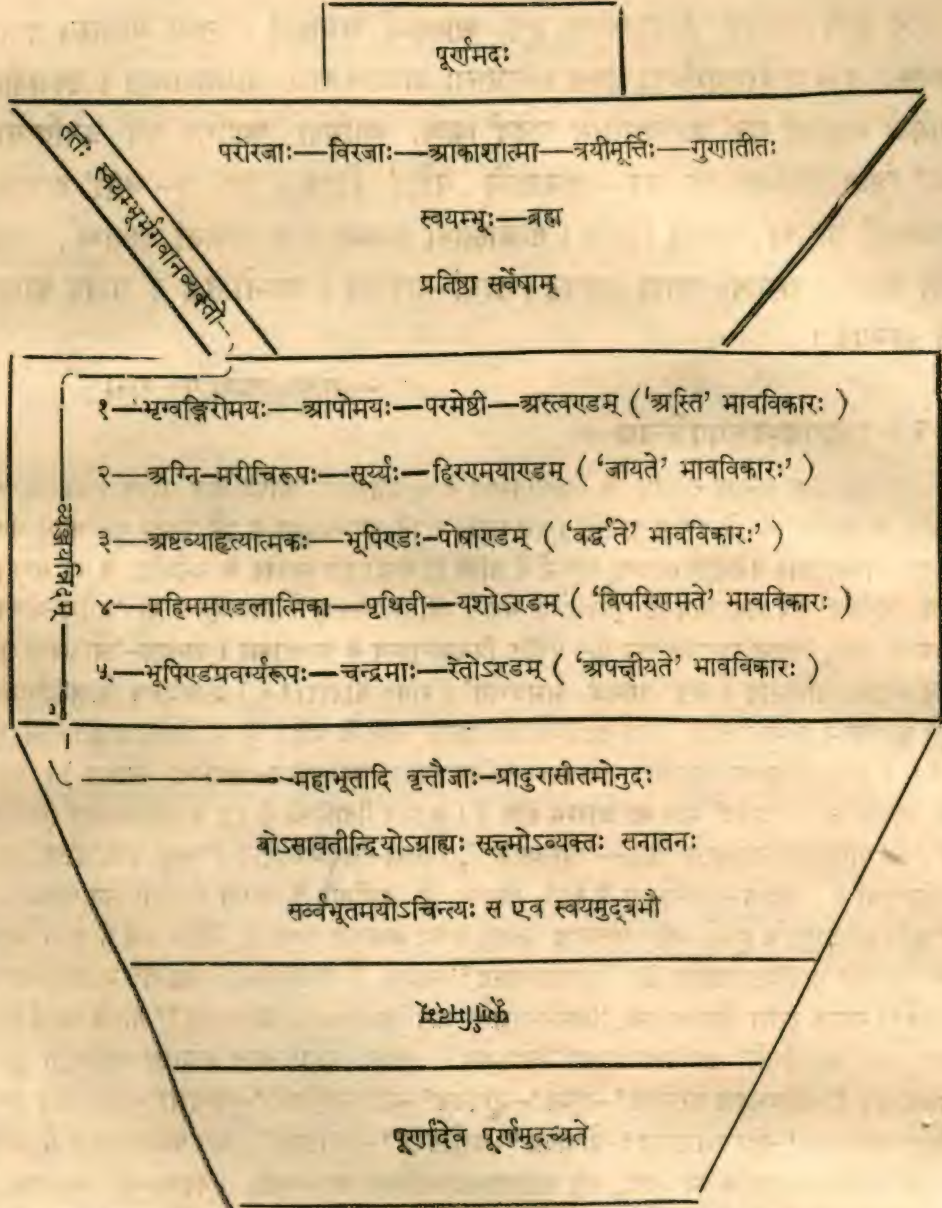 पूर्णमदः
परोरजाः—विरजाः—आकाशात्मा—त्रयीमूर्त्तिः—गुणातीतः
स्वयम्भूः—ब्रह्म
प्रतिष्ठा सर्वेषाम्
ततः स्वयम्भूर्भगवानव्यक्तो
१—भृग्वङ्गिरोमयः—आपोमयः—परमेष्ठी—अस्त्वण्डम् ('अस्ति' भावविकारः )
२—अग्नि-मरीचिरूपः—सूर्य्यः—हिरण्मयाण्डम् ( 'जायते' भावविकारः' )
३—अष्टव्याहृत्यात्मकः—भूपिण्डः-पोषाण्डम् ( 'वर्द्धते' भावविकारः' )
४—महिममण्डलात्मिका—पृथिवी—यशोऽण्डम् ( 'विपरिणमते' भावविकारः )
५—भूपिण्डप्रवर्ग्यरूपः—चन्द्रमाः—रेतोऽण्डम् ( 'अपक्षीयते' भावविकारः )
व्यञ्जयन्निदम्
—महाभूतादि वृत्तौजाः-प्रादुरासीत्तमोनुदः
योऽसावतीन्द्रियोऽग्राह्यः सूक्ष्मोऽव्यक्तः सनातनः
सर्व्वभूतमयोऽचिन्त्यः स एव स्वयमुद्बभौ
पूर्णमिदम्
पूर्णादेव पूर्णमुदच्यते